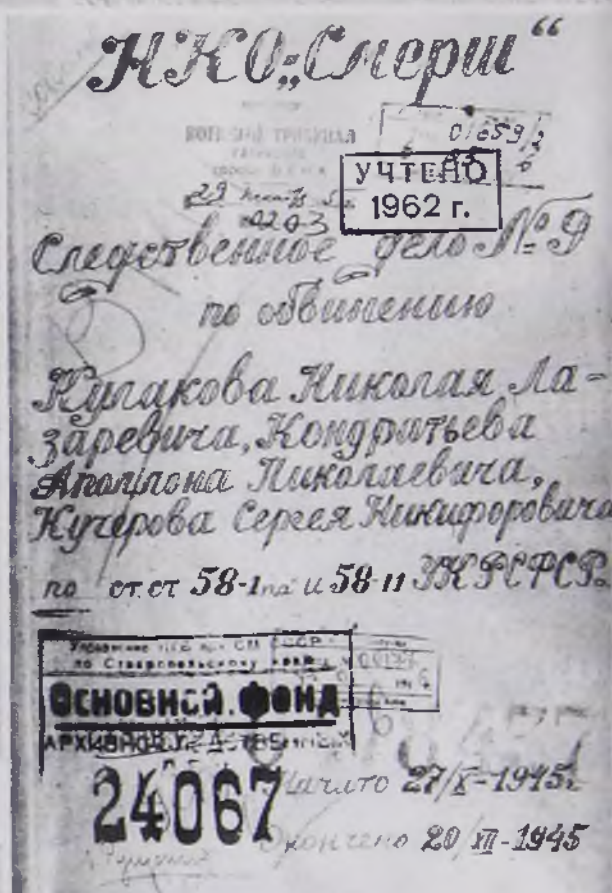 НКО „Смерш“
ВОЕННЫЙ ТРИБУНАЛ
01659/2
УЧТЕНО
1962 г.
29
0203
Следственное дело № 9
по обвинению
Кулакова Николая Ла-
заревича, Кондратьева
Аполлона Николаевича,
Кучерова Сергея Никифоровича
по ст.ст 58-1 и 58-11 УК РСФСР.
Управление при СМ СССР
по Ставропольскому краю
ОСНОВНОЙ ФОНД
АРХИВНО-СЛЕДСТВЕННЫЙ
24067
Начато 27/X-1945.
Окончено 20/XII-1945